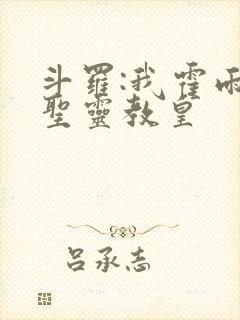 斗羅:我霍雨
聖靈教皇
呂承志